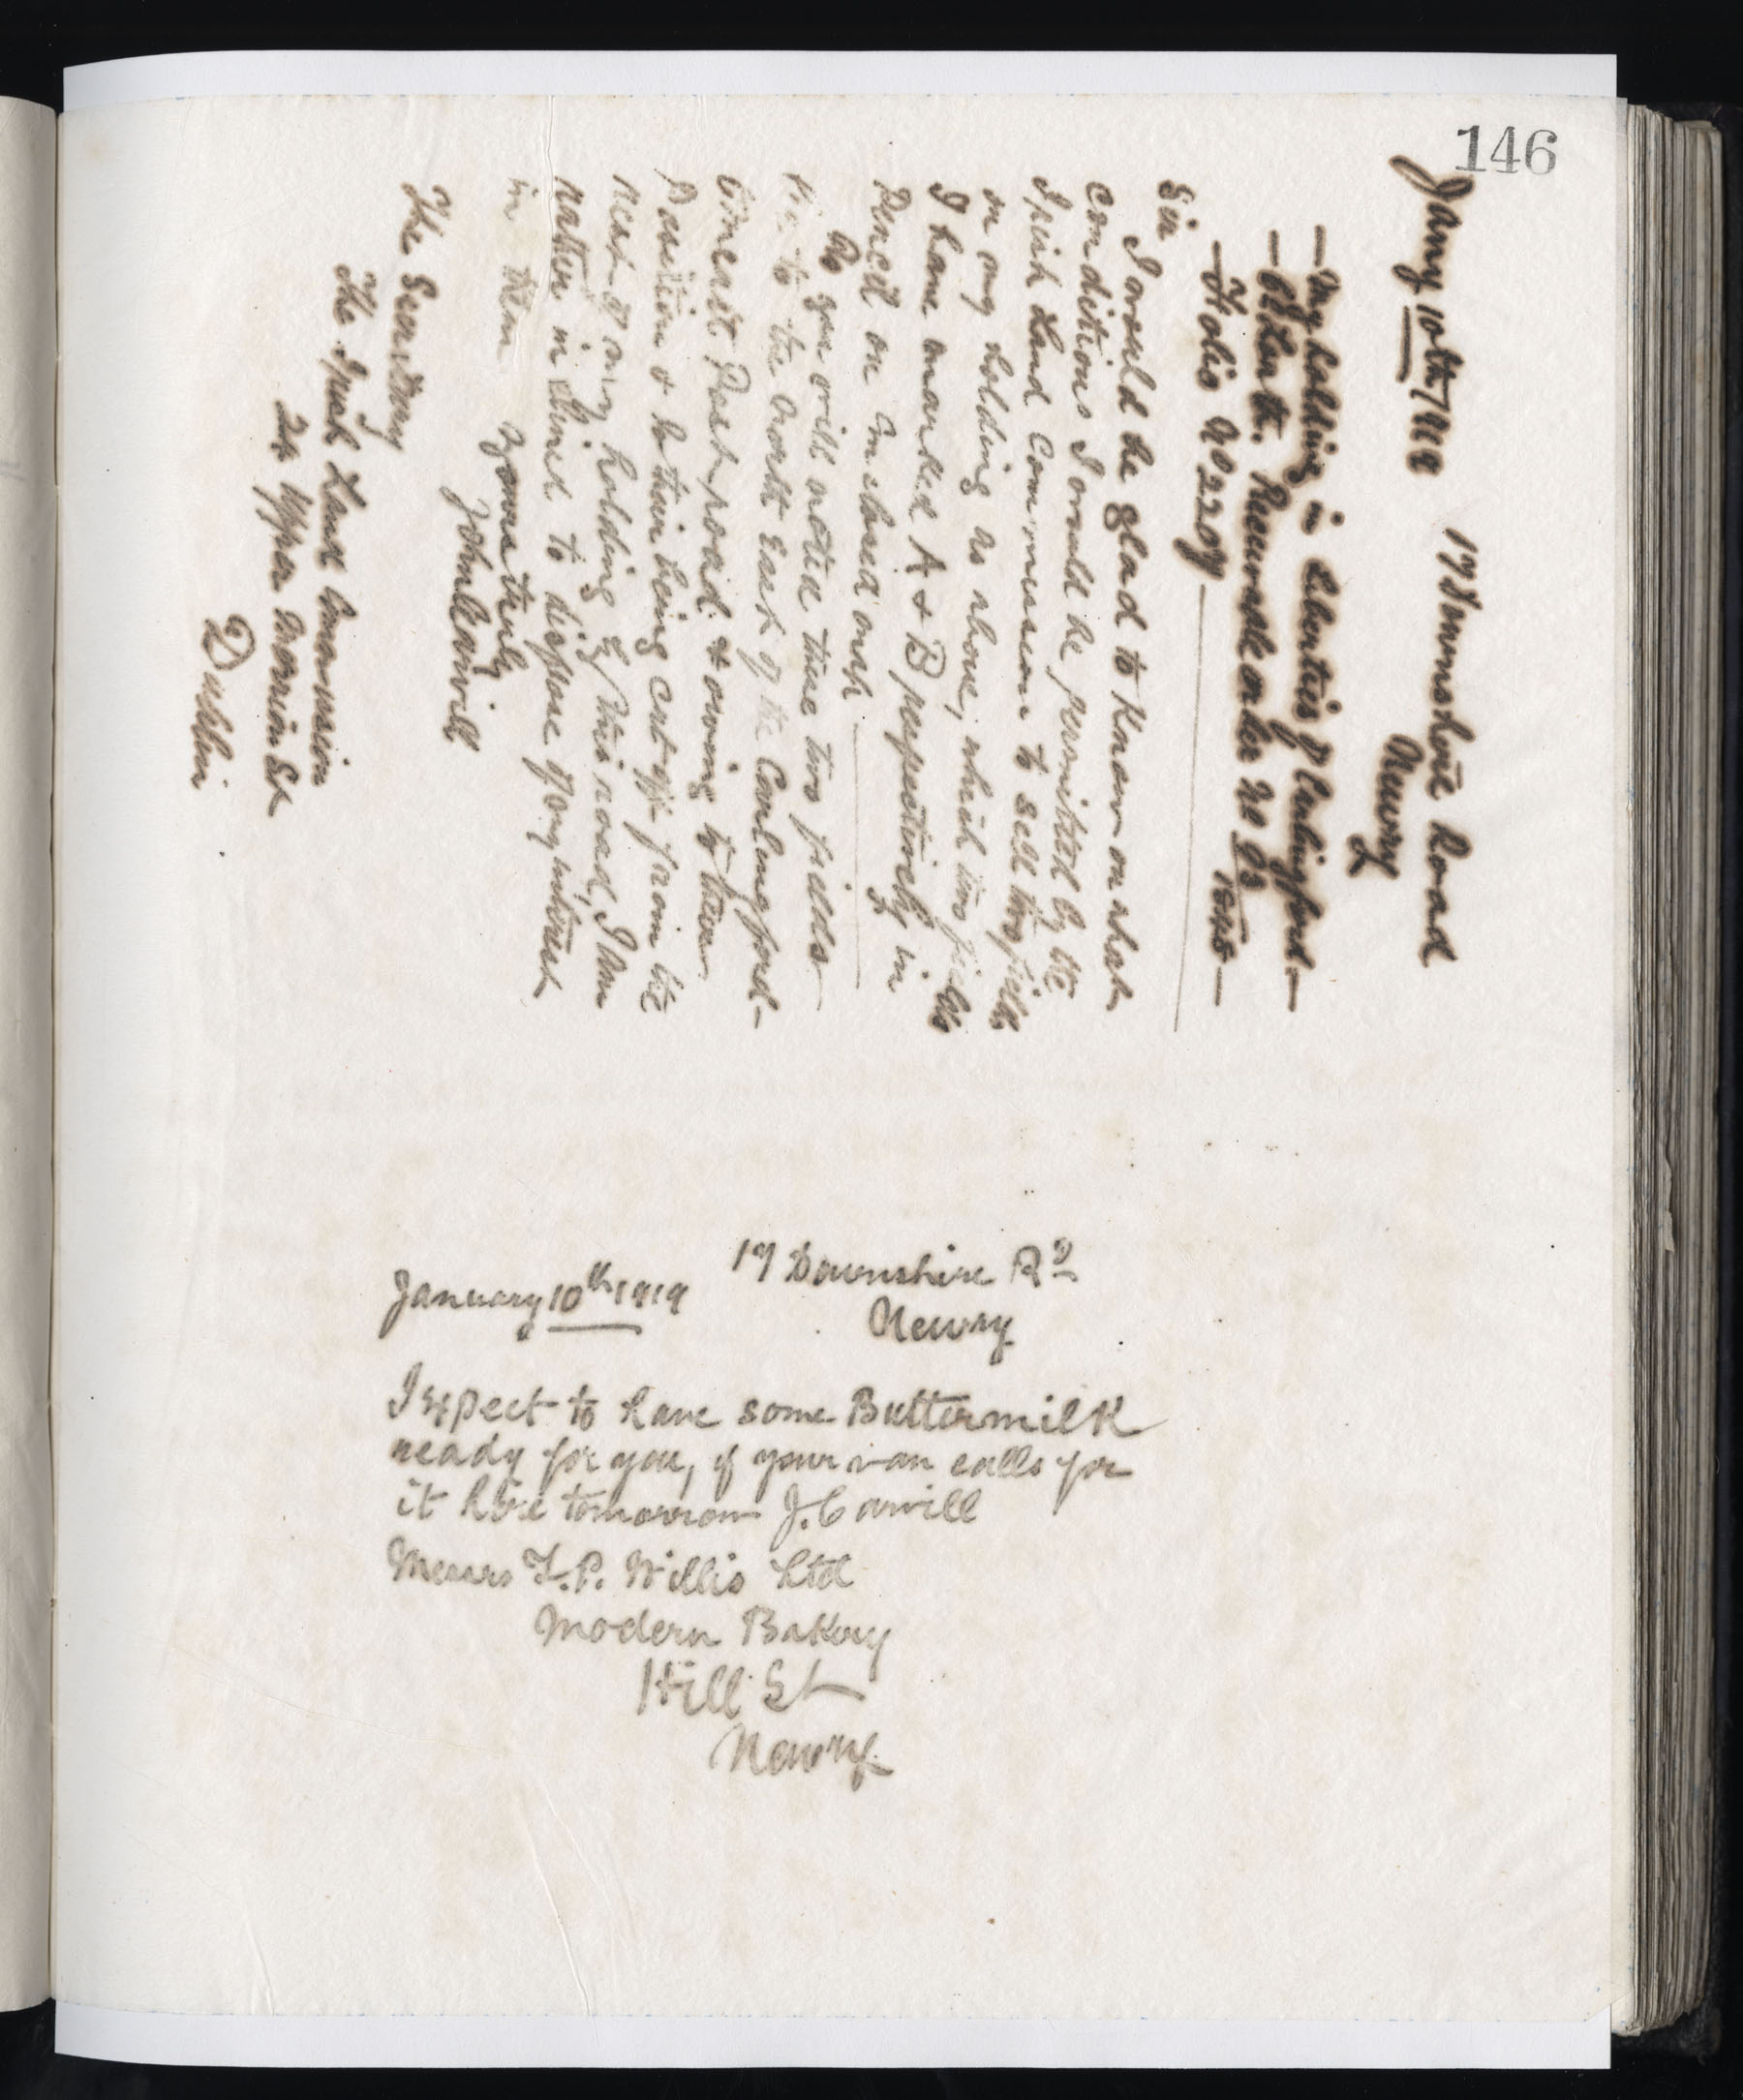 146
17 Downshire Road
Jany 10th/1919
Newry
— My holding in Liberties of Carlingford —
— Co Louth. Receivable order No 93
1845 —
— Folio No 2207 —
Sir
I would be glad to know on what
conditions I would be permitted by the
Irish Land Commission to sell two fields
on my holding as above, which two fields
I have marked A & B respectively, in
Pencil on Enclosed map
As you will notice these two fields
lie to the North East of the Carlingford –
Omeath Road & owing to their
Position & to their being cut off from the
rest of my holding by this road, I am
rather inclined to dispose of my interest
in them
Yours truly
John Carvill
The Secretary
The Irish Land Commission
24 Upper Merrion St
Dublin
17 Downshire Rd
January 10th 1919
Newry
I expect to have some Buttermilk
ready for you, if your van calls for
it here tomorrow J. Carvill
Messrs F. P. Willis Ltd
Modern Bakery
Hill St
Newry